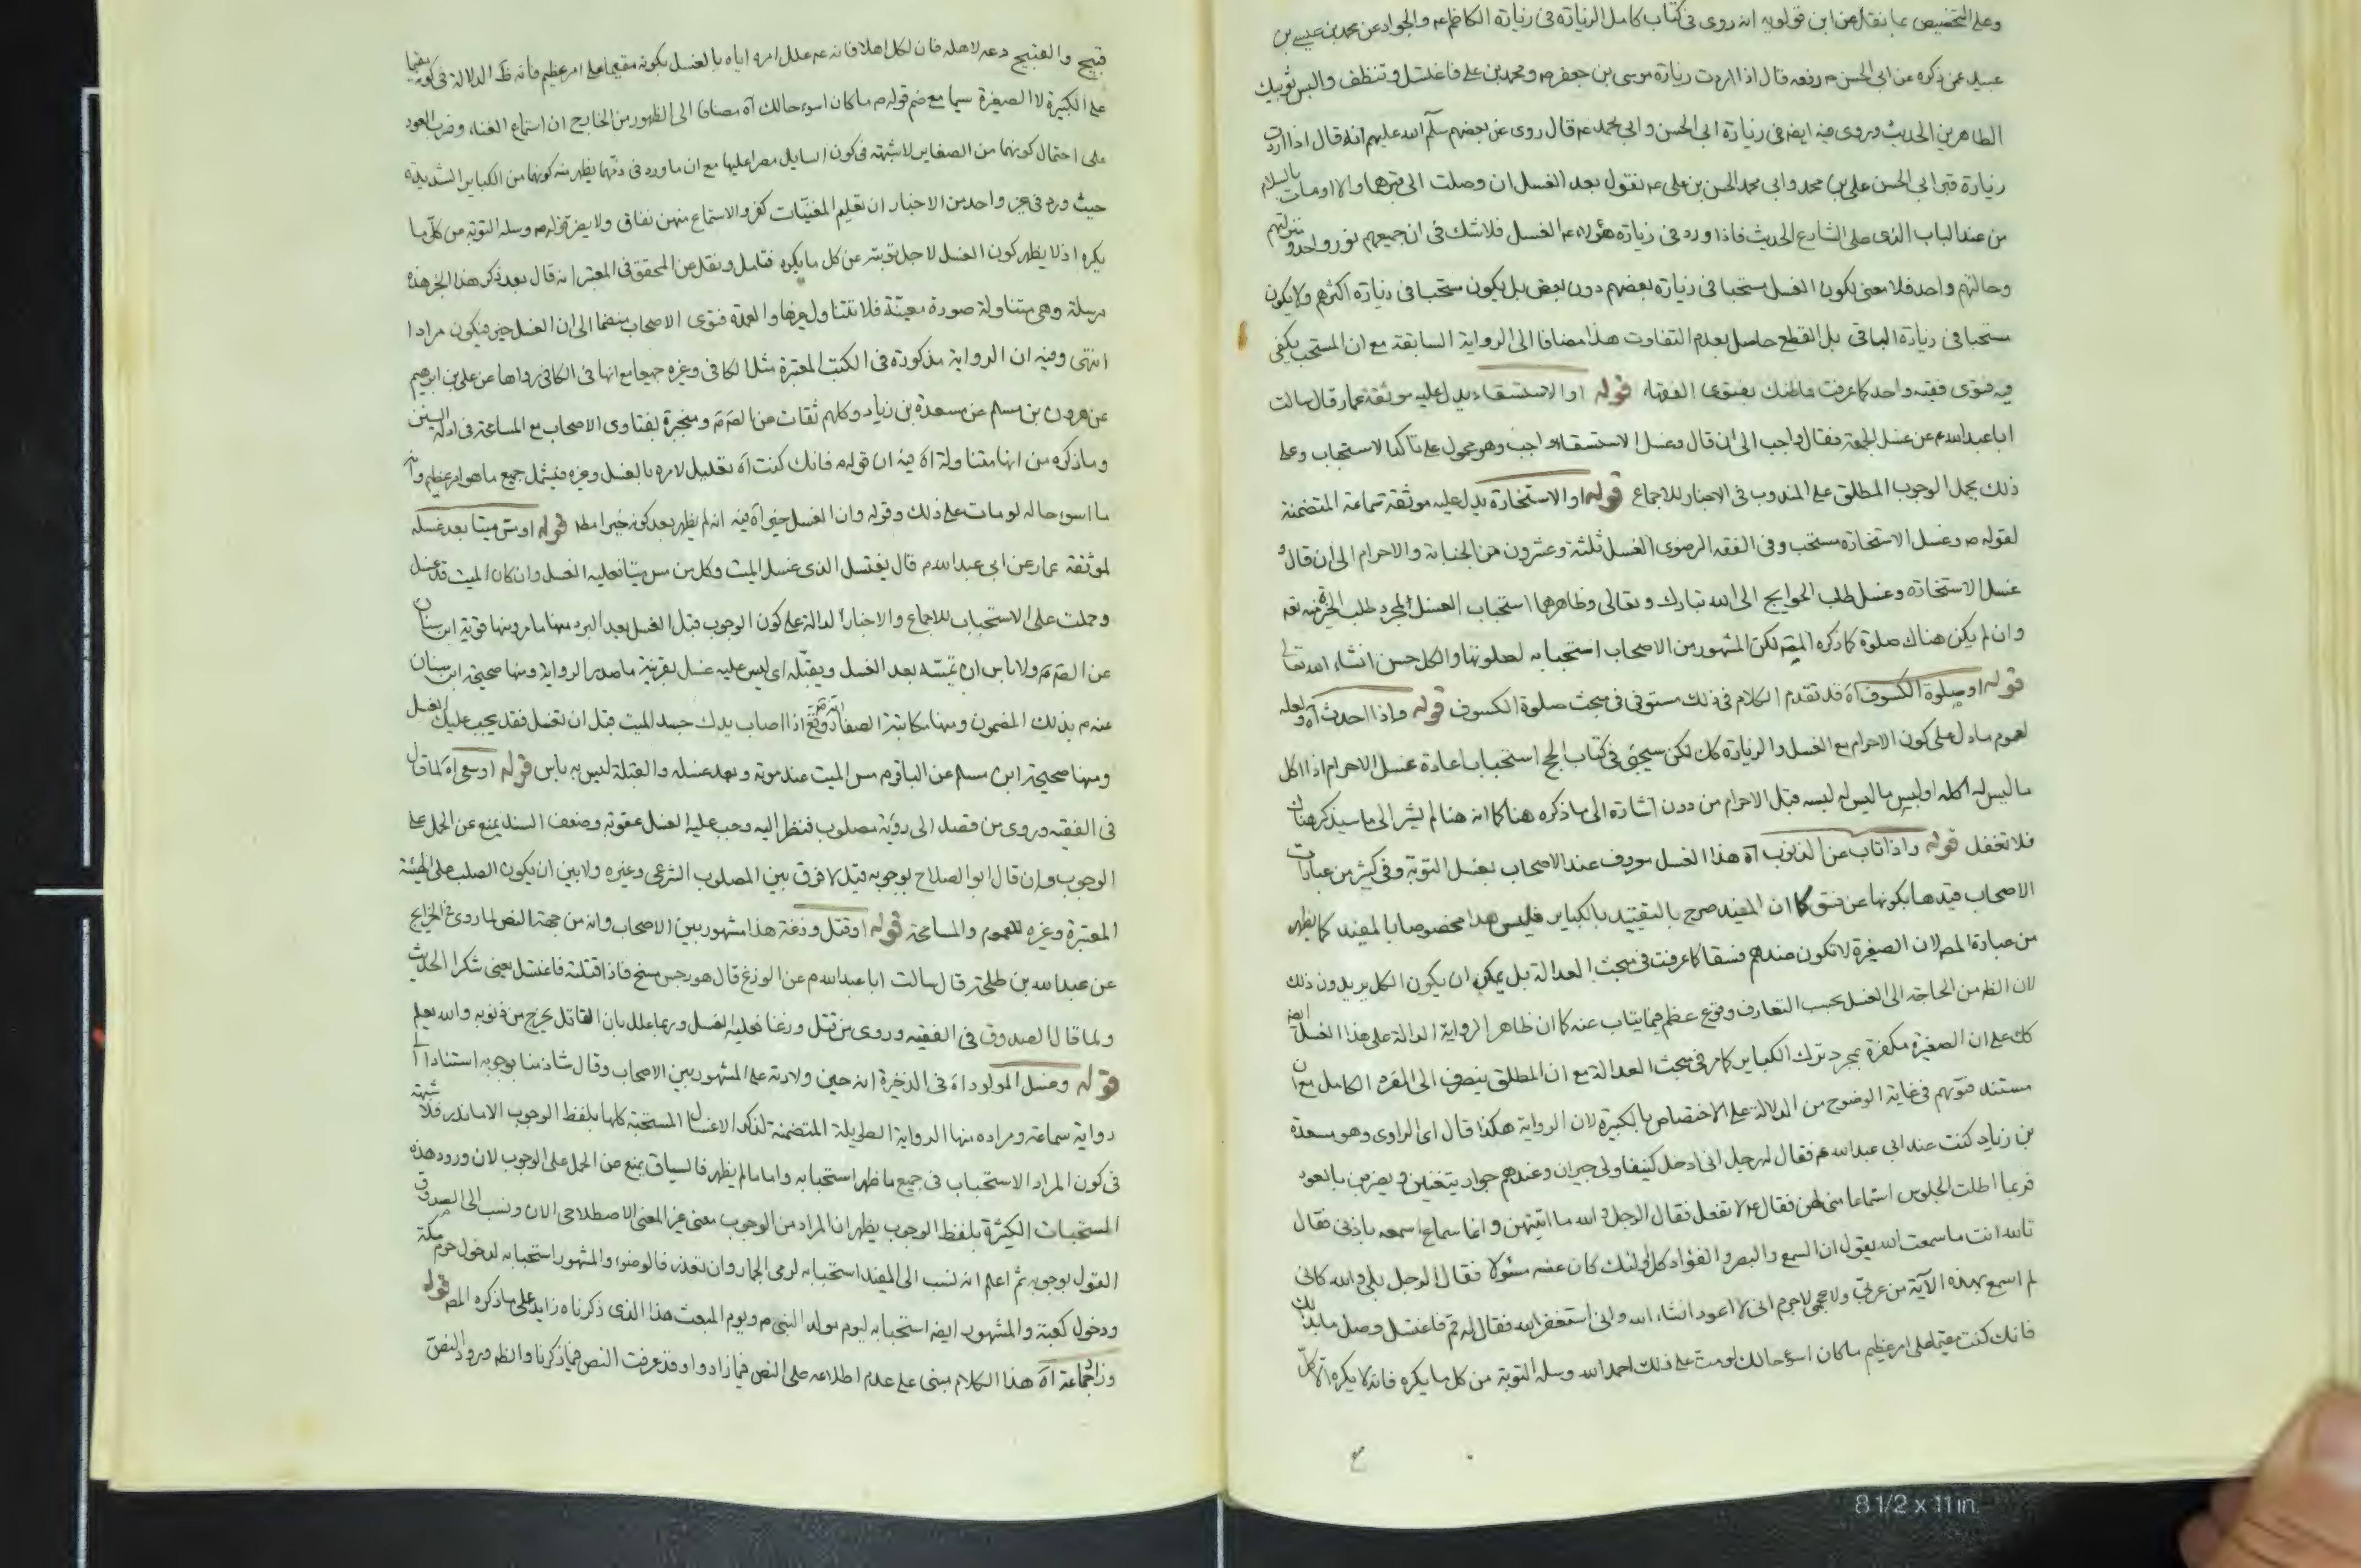 وعلى التخصيص بما نقل عن ابن قولويه انه روى فى كتاب كامل الزيارة فى زيارة الكاظم ع والجواد عن محمد بن عيسى بن
عبيد عمن ذكره عن ابى الحسن م رفعه قال اذا اردت زيارة موسى بن جعفر م ومحمد بن على فاغتسل وتنظف والبس ثوبيك
الطاهرين الحديث وروى فيه ايضا فى زيارة ابى الحسن وابى محمد ع قال روى عن بعضهم سلم الله عليهم انه قال اذا اردت
زيارة قبر ابى الحسن على بن محمد وابى محمد الحسن بن على ع تقول بعد الغسل ان وصلت الى قبرهما والا اومات بالسلام
من عند الباب الذى على الشارع الحديث فاذا ورد فى زيارة هؤلاء ع الغسل فلا شك فى ان جميعهم نور واحد ومنزلتهم
وحالتهم واحد فلا معنى لكون الغسل مستحبا فى زيارة بعضهم دون بعض بل يكون مستحبا فى زيارة اكثرهم ولا يكون
مستحبا فى زيارة الباقى بل القطع حاصل بعدم التفاوت هذا مضافا الى الرواية السابقة مع ان المستحب يكفى
فيه فتوى فقيه واحد كما عرفت فما ظنك بفتوى الفقهاء قوله او الاستسقاء يدل عليه موثقة عمار قال سالت
ابا عبد الله م عن غسل الجمعة فقال واجب الى ان قال وغسل الاستسقاء واجب وهو محمول على تاكد الاستحباب وعلى
ذلك يحمل الوجوب المطلق على المندوب فى الاخبار للاجماع قوله او الاستخارة يدل عليه موثقة سماعة المتضمنة
لقوله م وغسل الاستخارة مستحب وفى الفقه الرضوى الغسل ثلثة وعشرون من الجنابة والاحرام الى ان قال و
غسل الاستخارة وغسل طلب الحوايج الى الله تبارك وتعالى وظاهرها استحباب الغسل لمجرد طلب الخيرة منه تعه
وان لم يكن هناك صلوة كما ذكره المص لكن المشهور من الاصحاب استحبابه لصلوتها والكل حسن انشاء الله تعالى
قوله او صلوة الكسوف آه قد تقدم الكلام فى ذلك مستوفى فى مبحث صلوة الكسوف قوله واذا احدث آه ولعله
لعموم ما دل على كون الاحرام مع الغسل والزيارة كك لكن سيجئ فى كتاب الحج استحباب اعادة غسل الاحرام اذا اكل
ما ليس له اكله او لبس ما ليس له لبسه قبل الاحرام من دون اشارة الى ما ذكره هنا كما انه هنا لم يشر الى ما سيذكر هناك
فلا تغفل قوله واذا تاب عن الذنوب آه هذا الغسل معروف عند الاصحاب بغسل التوبة وفى كثير من عبارات
الاصحاب قيدها بكونها عن فسق كما ان المفيد صرح بالتقييد بالكباير فليس هذا مخصوصا بالمفيد كما يظهر
من عبارة المص لان الصغيرة لا تكون عندهم فسقا كما عرفت فى مبحث العدالة بل يمكن ان يكون الكل يريدون ذلك
لان الظ من الحاجة الى الغسل بحسب التعارف وقوع عظم فيما يتاب عنه كما ان ظاهر الرواية الدالة على هذا الغسل ايضا
كك على ان الصغيرة مكفرة بمجرد ترك الكباير كما مر فى مبحث العدالة مع ان المطلق ينصرف الى الفرد الكامل مع ان
مستند فتوهم فى غاية الوضوح من الدلالة على الاختصاص بالكبيرة لان الرواية هكذا قال اى الراوى وهو مسعدة
بن زياد كنت عند ابى عبد الله ع فقال له رجل انى ادخل كنيفا ولى جيران وعندهم جوار يتغنين ويضربن بالعود
فربما اطلت الجلوس استماعا منى لهن فقال ع لا تفعل فقال الرجل والله ما اتيتهن وانما سماع اسمعه باذنى فقال
تالله انت ما سمعت الله يقول ان السمع والبصر والفؤاد كل اولئك كان عنه مسئولا فقال الرجل بلى والله كانى
لم اسمع بهذه الآية من عربى ولا عجمى لا جرم انى لا اعود انشاء الله وانى استغفر الله فقال له قم فاغتسل وصل ما بدا لك
فانك كنت مقيما على امر عظيم ما كان اسوء حالك لو مت على ذلك احمد الله وسله التوبة من كل ما يكره فانه لا يكره الا كل
قبيح والقبيح دعه لاهله فان لكل اهلا فانه ع علل امره اياه بالغسل بكونه مقيما على امر عظيم فانه ظ الدلالة فى كونه مقيما
على الكبيرة لا الصغيرة سيما مع ضم قوله م ما كان اسوء حالك آه مضافا الى الظهور من الخارج ان استماع الغناء وضرب العود
على احتمال كونهما من الصغاير لا شبهة فى كون السايل مصرا عليها مع ان ما ورد فى ذمهما يظهر منه كونهما من الكباير الشديدة
حيث ورد فى غير واحد من الاخبار ان تعليم المغنيات كفر والاستماع منهن نفاق ولا يضر قوله م وسله التوبة من كل ما
يكره اذ لا يظهر كون الغسل لاجل توبته عن كل ما يكره فتامل ونقل عن المحقق فى المعتبر انه قال بعد ذكر هذا الخبر هذه
مرسلة وهى متناولة صورة معينة فلا تتناول غيرها والعمدة فتوى الاصحاب منضما الى ان الغسل خير فيكون مرادا
انتهى وفيه ان الرواية مذكورة فى الكتب المعتبرة مثل الكافى وغيره جميعا مع انها فى الكافى رواها عن على بن ابراهيم
عن هرون بن مسلم عن مسعدة بن زياد وكلهم ثقات عن الصم م ومنجبرة بفتاوى الاصحاب مع المسامحة فى ادلة السنن
وما ذكره من انها متناولة آه فيه ان قوله م فانك كنت آه تعليل لامره بالغسل وغيره فيشمل جميع ما هو امر عظيم وانه
ما اسوء حاله لو مات على ذلك وقوله وان الغسل خير آه فيه انه لم يظهر بعد كونه خيرا مط قوله او مس ميتا بعد غسله
لموثقة عمار عن ابى عبد الله م قال يغتسل الذى غسل الميت وكل من مس ميتا فعليه الغسل وان كان الميت قد غسل
وحملت على الاستحباب للاجماع والاخبار الدالة على كون الوجوب قبل الغسل بعد البرد منها ما مر ومنها قوية ابن سنان
عن الصم م ولا باس ان يمسه بعد الغسل ويقبله اى ليس عليه غسل بقرينة ما صدر الرواية ومنها صحيحة ابن سنان
عنه م بذلك المضمون ومنها مكاتبة الصفار ووقع اذا اصاب يدك جسد الميت قبل ان تغسل فقد يجب عليك الغسل
ومنها صحيحة ابن مسلم عن الباقر م مس الميت عند موته وبعد غسله والقبلة ليس به باس قوله او سعى آه لما قال
فى الفقيه وروى من قصد الى رؤية مصلوب فنظر اليه وجب عليه الغسل عقوبة وضعف السند يمنع عن الحمل على
الوجوب وان قال ابو الصلاح بوجوبه قيل لا فرق بين المصلوب الشرعى وغيره ولا بين ان يكون الصلب على الهيئة
المعتبرة وغيره للعموم والمسامحة قوله او قتل وزغة هذا مشهور بين الاصحاب وانه من جهة النص لما روى فى الخرايج
عن عبد الله بن طلحة قال سالت ابا عبد الله م عن الوزغ قال هو رجس مسخ فاذا قتلته فاغتسل يعنى شكرا الحديث
ولما قال الصدوق فى الفقيه وروى من قتل وزغا فعليه الغسل وربما علل بان القاتل يخرج من ذنوبه والله يعلم
قوله وغسل المولود آه فى الذخيرة انه حين ولادته على المشهور بين الاصحاب وقال شاذ منا بوجوبه استنادا الى
رواية سماعة ومراده منها الرواية الطويلة المتضمنة لذكر الاغسال المستحبة كلها بلفظ الوجوب الا ما ندر فلا شبهة
فى كون المراد الاستحباب فى جميع ما ظهر استحبابه واما ما لم يظهر فالسياق يمنع من الحمل على الوجوب لان ورود هذه
المستحبات الكثيرة بلفظ الوجوب يظهر ان المراد من الوجوب معنى غير المعنى الاصطلاحى الان ونسب الى الصدوق
القول بوجوبه ثم اعلم انه نسب الى المفيد استحبابه لرمى الجمار وان تعذر فالوضوء والمشهور استحبابه لدخول حرم مكة
ودخول كعبة والمشهور ايضه استحبابه ليوم مولد النبى م ويوم المبعث هذا الذى ذكرناه زايد على ما ذكره المص قوله
وزاد جماعة آه هذا الكلام مبنى على عدم اطلاعه على النص فيما زادوا وقد عرفت النص فيما ذكرنا والظ ورود النص
8 1/2 x 11 in.